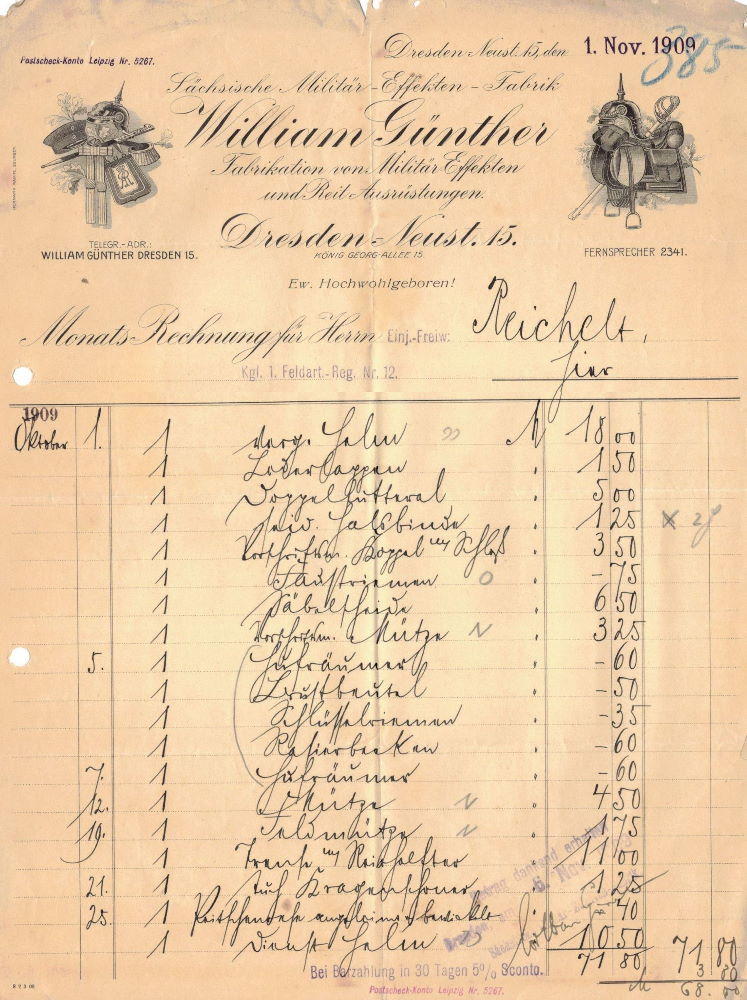 Postscheck-Konto Leipzig Nr. 5267.
Dresden-Neust. 15, den 1. Nov. 1909
385
Sächsische Militär-Effekten-Fabrik
William Günther
Fabrikation von Militär Effekten
und Reit-Ausrüstungen.
Dresden-Neust. 15.
KÖNIG GEORG-ALLEE 15
TELEGR.-ADR.:
WILLIAM GÜNTHER DRESDEN 15.
FERNSPRECHER 2341.
Ew. Hochwohlgeboren!
Monats-Rechnung für Herrn Einj.-Freiw: Reichelt,
Kgl. 1. Feldart.-Reg. Nr. 12. hier
1909
Oktober 1. 1 Helm M 18 00
1 1 50
1 Doppelfutteral 5 00
1 seid. Halsbinde 1 25
1 Vorschriftsm. Koppel und Schloß 3 50
1 Faustriemen - 75
1 Säbelscheide 6 50
1 Vorschriftsm. Mütze 3 25
5. 1 Hufräumer - 60
1 Brustbeutel - 50
1 Schlüsselriemen - 35
1 Rasierbecken - 60
7. 1 Hufräumer - 60
12. 1 Mütze 4 50
19. 1 Feldmütze 1 75
1 Trense und Reithalfter 11 00
21. 1 Tuch Kragenschoner 1 25
25. 1 - 40
1 Dienst Helm 10 50
71 80 71 80
3 80
M 68. 00
Bei Barzahlung in 30 Tagen 5% Sconto.
Postscheck-Konto Leipzig Nr. 5267.